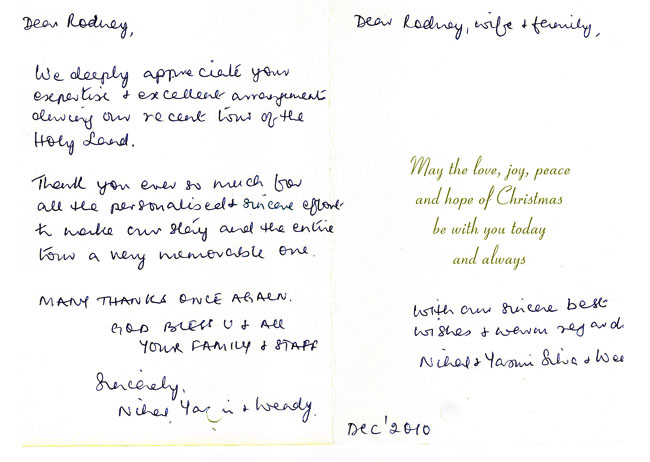 Dear Rodney,
We deeply appreciate your
expertise & excellent arrangement
during our recent tour of the
Holy Land.
Thank you ever so much for
all the personalised & sincere effort
to make our stay and the entire
tour a very memorable one.
MANY THANKS ONCE AGAIN.
GOD BLESS U & ALL
YOUR FAMILY & STAFF
Sincerely,
Nihal, & Wendy.
Dear Rodney, wife & family,
May the love, joy, peace
and hope of Christmas
be with you today
and always
With our sincere best
wishes & warm regards
Nihal & Yasmi Silva & Wee
Dec' 2010